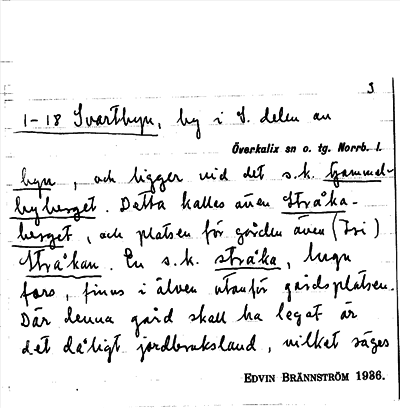 3
1-18 Svartbyn, by i S. delen av
Överkalix sn o. tg. Norrb. l.
byn, och ligger vid det s.k. Gammel-
byberget. Detta kalles även Stråka-
berget, och platsen för gården även (I si)
Stråkan. En s.k. stråka, lugn
fors, finns i älven utanför gårdsplatsen.
Där denna gård skall ha legat är
det dåligt jordbruksland, vilket säges
EDVIN BRÄNNSTRÖM 1936.